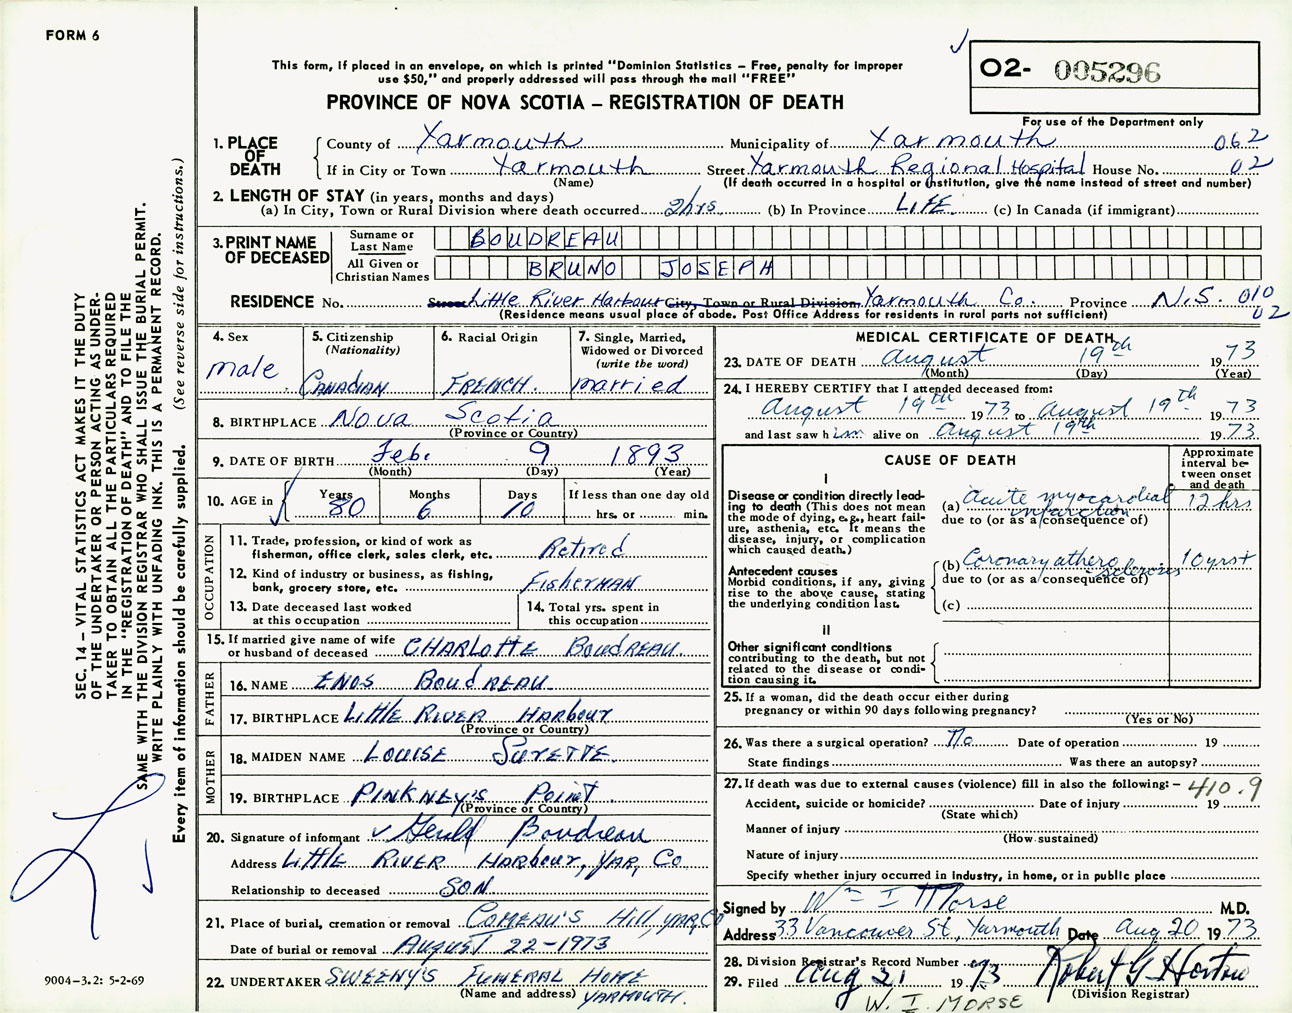 FORM 6
This form, if placed in an envelope, on which is printed "Dominion Statistics – Free, penalty for improper
use $50," and properly addressed will pass through the mail "FREE"
PROVINCE OF NOVA SCOTIA – REGISTRATION OF DEATH
02- 005296
For use of the Department only
1. PLACE OF DEATH
County of Yarmouth Municipality of Yarmouth 062
If in City or Town Yarmouth Street Yarmouth Regional Hospital House No. 02
(Name) (If death occurred in a hospital or institution, give the name instead of street and number)
2. LENGTH OF STAY (in years, months and days)
(a) In City, Town or Rural Division where death occurred 2hrs (b) In Province LIFE (c) In Canada (if immigrant)
3. PRINT NAME OF DECEASED
Surname or Last Name BOUDREAU
All Given or Christian Names BRUNO JOSEPH
RESIDENCE No. Street Little River Harbour City, Town or Rural Division Yarmouth Co. Province N.S. 010
02
(Residence means usual place of abode. Post Office Address for residents in rural parts not sufficient)
4. Sex male
5. Citizenship (Nationality) CANADIAN
6. Racial Origin FRENCH.
7. Single, Married, Widowed or Divorced (write the word) married
8. BIRTHPLACE Nova Scotia
(Province or Country)
9. DATE OF BIRTH Feb. 9 1893
(Month) (Day) (Year)
10. AGE in Years 80 Months 6 Days 10 If less than one day old
hrs. or min.
OCCUPATION
11. Trade, profession, or kind of work as
fisherman, office clerk, sales clerk, etc. Retired
12. Kind of industry or business, as fishing,
bank, grocery store, etc. FISHERMAN
13. Date deceased last worked
at this occupation
14. Total yrs. spent in
this occupation
15. If married give name of wife
or husband of deceased CHARLOTTE BOUDREAU.
FATHER
16. NAME ENOS BOUDREAU
17. BIRTHPLACE LITTLE RIVER HARBOUR
(Province or Country)
MOTHER
18. MAIDEN NAME LOUISE SURETTE.
19. BIRTHPLACE PINKNEY'S POINT.
(Province or Country)
20. Signature of informant Gerald Boudreau
Address LITTLE RIVER HARBOUR, YAR, CO
Relationship to deceased SON
21. Place of burial, cremation or removal COMEAU'S HILL, YAR, CO
Date of burial or removal AUGUST 22-1973
22. UNDERTAKER SWEENY'S FUNERAL HOME
(Name and address) YARMOUTH.
MEDICAL CERTIFICATE OF DEATH
23. DATE OF DEATH August 19th 1973
(Month) (Day) (Year)
24. I HEREBY CERTIFY that I attended deceased from:
August 19th 1973 to August 19th 1973
and last saw him alive on August 19th 1973
CAUSE OF DEATH
Approximate interval between onset and death
I
Disease or condition directly leading to death (This does not mean the mode of dying, e.g., heart failure, asthenia, etc. It means the disease, injury, or complication which caused death.)
(a) Acute myocardial infarction 12 hrs
due to (or as a consequence of)
Antecedent causes
Morbid conditions, if any, giving rise to the above cause, stating the underlying condition last.
(b) Coronary athero-sclerosis 10 yrs +
due to (or as a consequence of)
(c)
II
Other significant conditions
contributing to the death, but not
related to the disease or condition causing it.
25. If a woman, did the death occur either during
pregnancy or within 90 days following pregnancy?
(Yes or No)
26. Was there a surgical operation? No Date of operation 19
State findings Was there an autopsy?
27. If death was due to external causes (violence) fill in also the following: – 410.9
Accident, suicide or homicide? Date of injury 19
(State which)
Manner of injury
(How sustained)
Nature of injury
Specify whether injury occurred in industry, in home, or in public place
Signed by Wm I Morse M.D.
Address 33 Vancouver St, Yarmouth Date Aug 20 1973
28. Division Registrar's Record Number
29. Filed Aug 21 1973 Robert G Horton
(Division Registrar)
W. I. MORSE
SEC. 14 – VITAL STATISTICS ACT MAKES IT THE DUTY
OF THE UNDERTAKER OR PERSON ACTING AS UNDER-
TAKER TO OBTAIN ALL THE PARTICULARS REQUIRED
IN THE "REGISTRATION OF DEATH" AND TO FILE THE
SAME WITH THE DIVISION REGISTRAR WHO SHALL ISSUE THE BURIAL PERMIT.
WRITE PLAINLY WITH UNFADING INK. THIS IS A PERMANENT RECORD.
Every item of information should be carefully supplied. (See reverse side for instructions.)
9004-3.2: 5-2-69